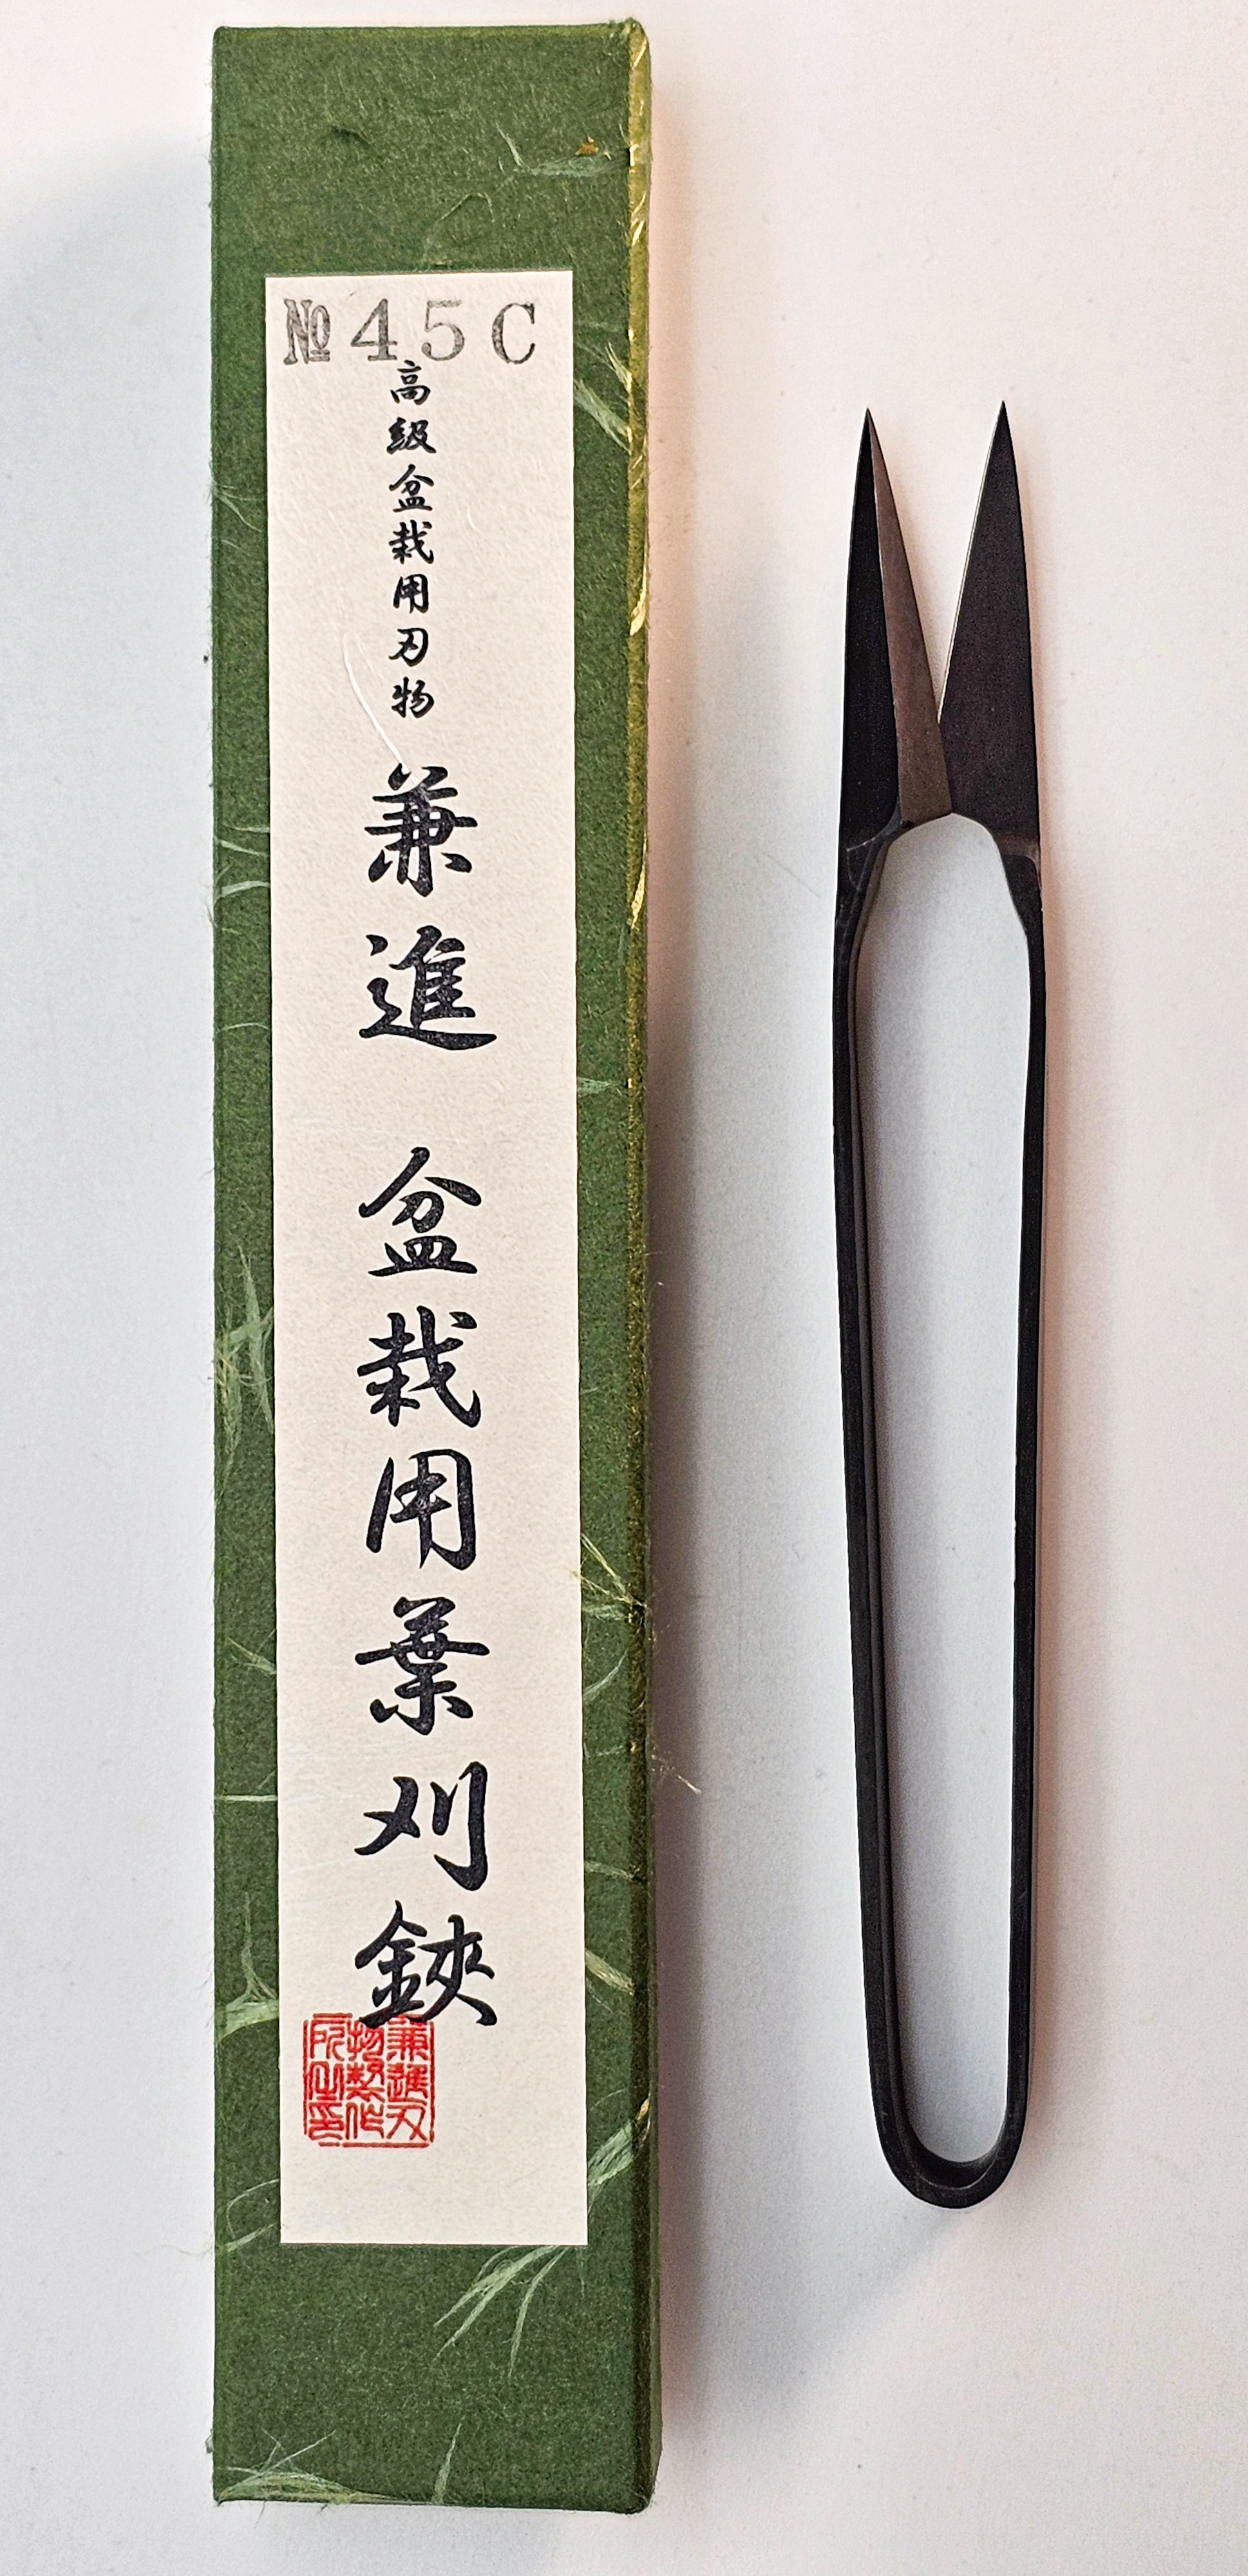 №45C
高級盆栽用刃物
兼進 盆栽用葉刈鋏
兼進刃
物製作
所之印